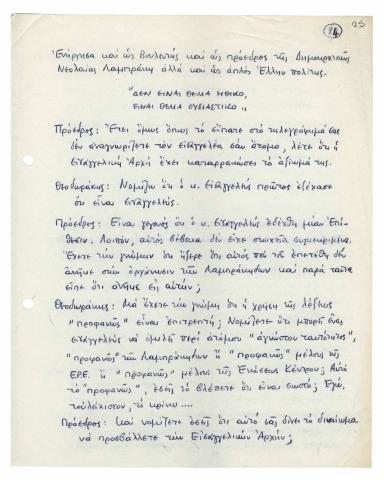 24
25
Ἐνήργησα καί ὡς Βουλευτής καί ὡς πρόεδρος τῆς Δημοκρατικῆς
Νεολαίας Λαμπράκη ἀλλά καί ὡς ἁπλός Ἕλλην πολίτης.
"ΔΕΝ ΕΙΝΑΙ ΘΕΜΑ ΗΘΙΚΟ,
ΕΙΝΑΙ ΘΕΜΑ ΟΥΣΙΑΣΤΙΚΟ"..
Πρόεδρος: Ἔτσι ὅμως ὅπως τό εἴπατε στό τηλεγράφημά σας
δέν ἀναγνωρίζετε τόν εἰσαγγελέα σάν ἄτομο, λέτε ὅτι ἡ
εἰσαγγελική Ἀρχή ἔχει καταρρακώσει τό ἀξίωμά της.
Θεοδωράκης: Νομίζω ὅτι ὁ κ. εἰσαγγελεύς πρῶτος ξέχασε
ὅτι εἶναι εἰσαγγελεύς.
Πρόεδρος: Εἶναι γεγονός ὅτι ὁ κ. εἰσαγγελεύς ἐδέχθη μίαν ἐπί-
θεσιν. Λοιπόν, αὐτός βέβαια δέν εἶχε στοιχεῖα συγκεκριμένα.
Ἔχετε τήν γνώμην ὅτι ἤξερε ὅτι αὐτός πού τοῦ ἐπετέθη δέν
ἀνῆκε στήν ὀργάνωσιν τῶν Λαμπράκηδων καί παρά ταῦτα
εἶπε ὅτι ἀνῆκε εἰς αὐτήν;
Θεοδωράκης: Μά ἔχετε τήν γνώμη ὅτι ἡ χρήση τῆς λέξεως
"προφανῶς" εἶναι ἐπιτρεπτή; Νομίζετε ὅτι μπορεῖ ἕνας
εἰσαγγελεύς νά ὁμιλεῖ περί ἀτόμου "ἀγνώστου ταυτότητος",
"προφανῶς τῶν Λαμπράκηδων ἤ "προφανῶς" μέλους τῆς
ΕΡΕ ἤ "προφανῶς" μέλους τῆς Ἑνώσεως Κέντρου; Αὐτό
τό "προφανῶς", ἐσεῖς τό βλέπετε ὅτι εἶναι σωστό; Ἐγώ,
τουλάχιστον, τό κρίνω....
Πρόεδρος: Καί νομίζετε ἐσεῖς ὅτι αὐτό σᾶς δίνει τό δικαίωμα
νά προσβάλλετε τήν Εἰσαγγελικήν Ἀρχήν;